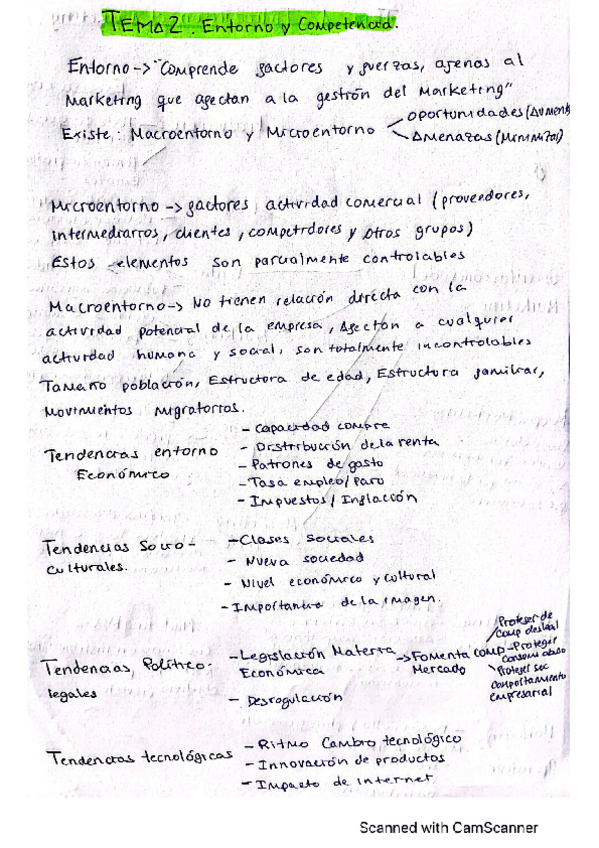 TEMA 2. Entorno y Competencia.
Entorno -> "Comprende factores y fuerzas, ajenas al
Marketing que afectan a la gestión del Marketing"
Existe: Macroentorno y Microentorno
oportunidades (Aument
Amenazas (Minimizar)
Microentorno -> factores actividad comercial (proveedores,
intermediarios, clientes, competidores y otros grupos)
Estos elementos son parcialmente controlables
Macroentorno -> No tienen relación directa con la
actividad potencial de la empresa, Afectan a cualquier
actividad humana y social, son totalmente incontrolables
Tamaño población, Estructora de edad, Estructura familiar,
Movimientos migratorios.
Tendencias entorno
Económico
- Capacidad compre
- Distribución de la renta
- Patrones de gasto
- Tasa empleo/paro
- Impuestos / Inflación
Tendencias Socio-
culturales.
- Clases sociales
- Nueva sociedad
- Nivel económico y cultural
- Importancia de la imagen.
Tendencias Político-
legales
- Legislación Materia
Económica
-> Fomenta comp
Mercado
Proteger de
comp desleal
- Proteger
consumi abuso
Proteger sec
comportamiento
empresarial
- Desregulación
Tendencias tecnológicas
- Ritmo Cambio tecnológico
- Innovación de productos
- Impacto de internet
Scanned with CamScanner